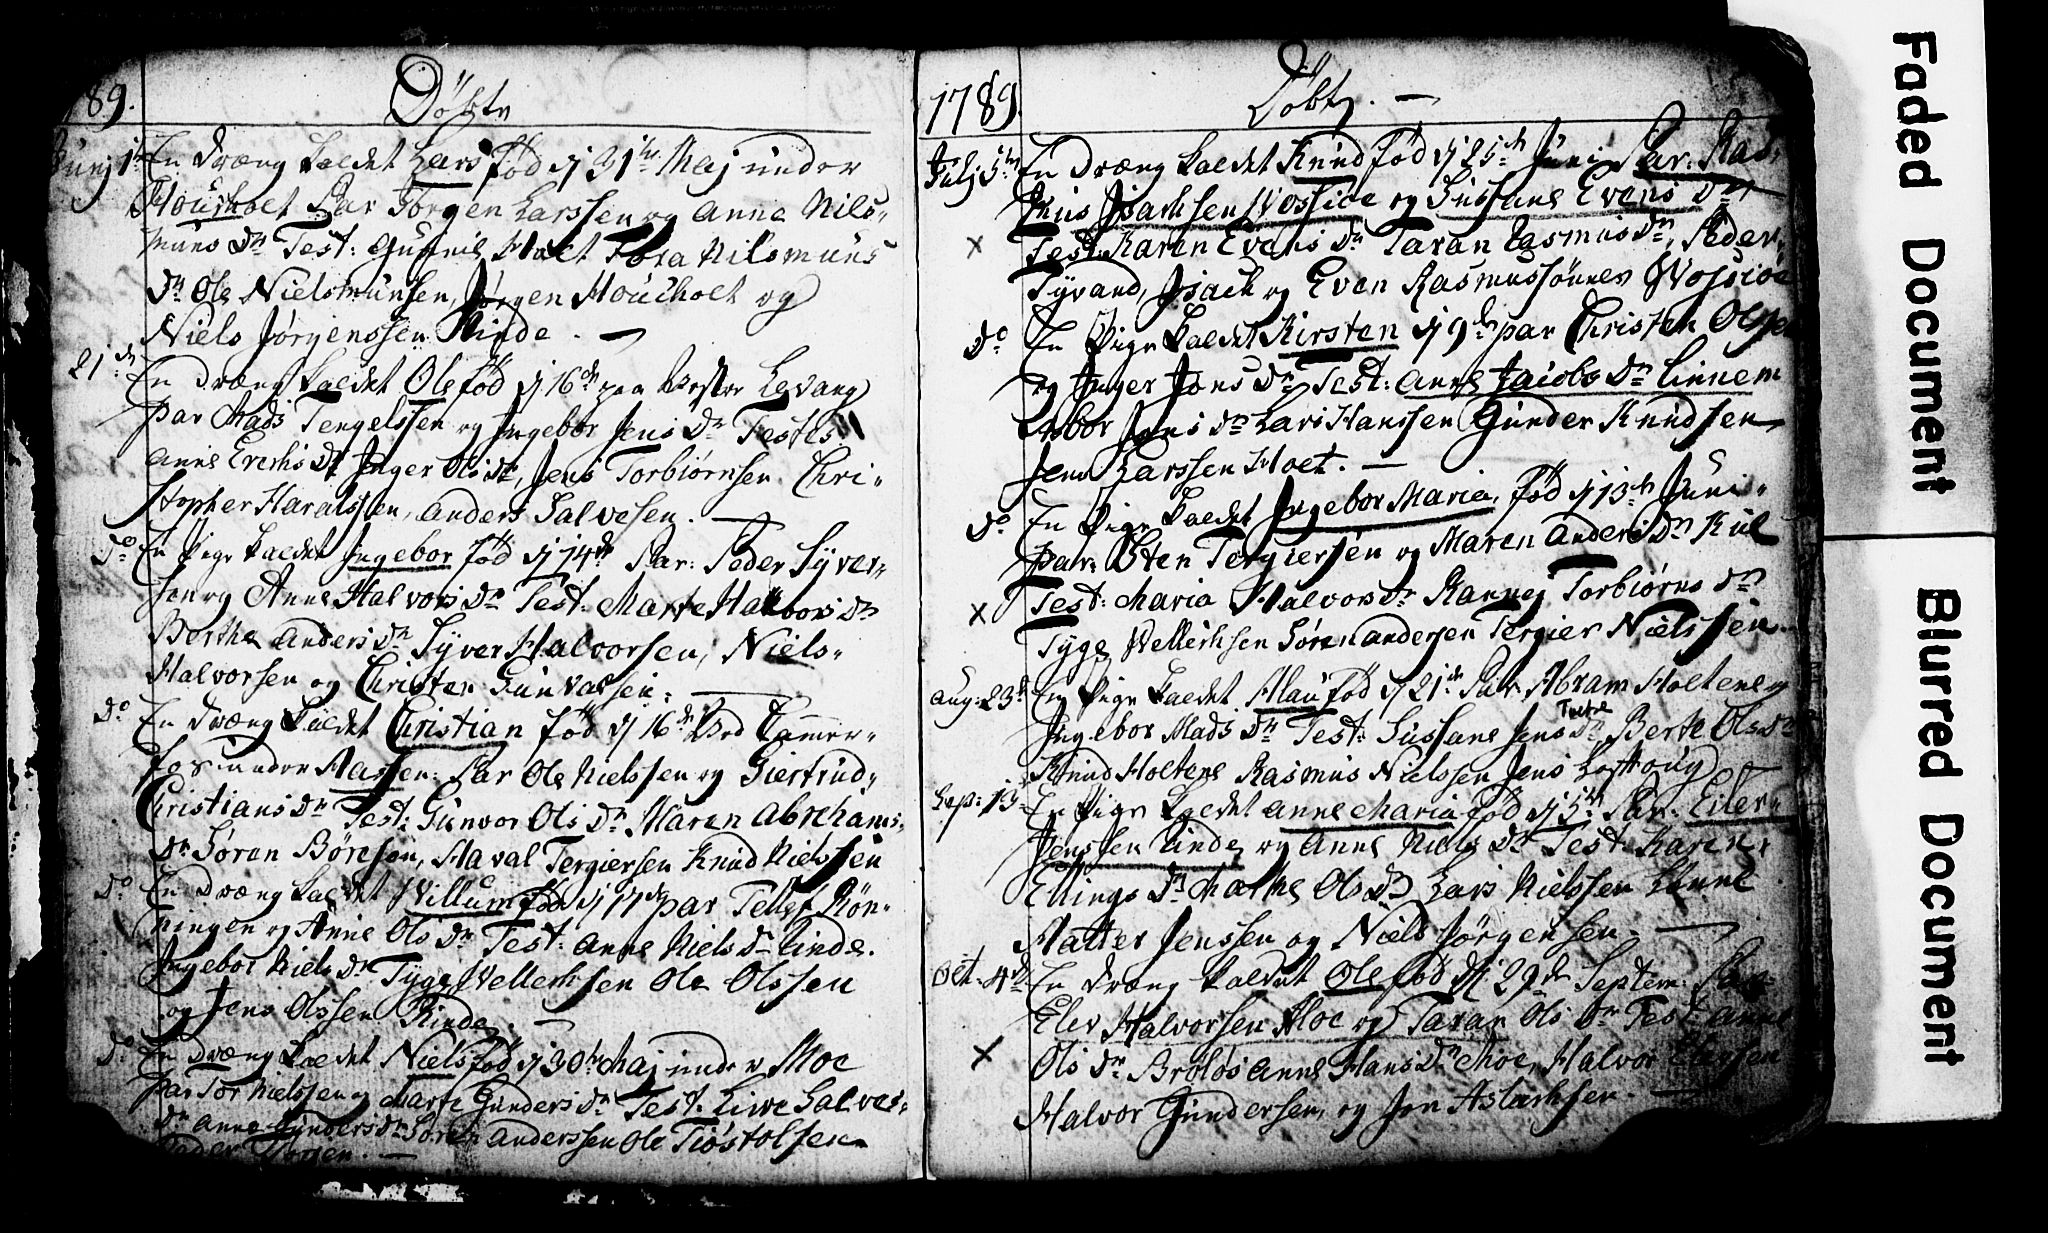 89.
Döbte
Junj 1te En dreng kaldet Lars fød dj 31te Maj under
Houcholt Par Jörgen Larssen og Anne Nils-
muns Dn Test: Gunnil Holt Tora Nilsmuns
Dn Ole Nielsmunsen, Jörgen Houcholt og
Niels Jörgenssen Rinde. —
21de En dreng kaldet Ole fød dj 16de paa Vestre Levang
par Mads Tengelssen og Ingebor Jens Dn Testes
Anne Erichs Dn Inger Ols Dn, Jens Torbiörnsen Chri-
stopher Haralssen, Anders Salvesen. —
Do En Pige kaldet Ingebor fød dj 14de Par: Peder Syver-
sen og Anne Halvors Dn Test: Marte Halvors Dn
Berthe Anders Dn Syver Halvorsen, Niels
Halvorsen og Christen Gunvalsen. —
Do En dreng kaldet Christian fød dj 16de Ved Tammer-
fos under Aassen: Par Ole Nielssen og Giertrud
Christians Dn Test: Gunvor Ols Dn Maren Abrehams
Dn Sören Böreson, Haval Tergiersen Knud Nielssen
Do En dreng kaldet Willum fød dj 11de par Tellef Rön-
ningen og Anne Ols Dn Test: Anne Niels Dn Linde.
Ingebor Niels Dn Tyge Wellerksen Ole Olssen
og Jens Olssen Rinde. —
Do En Dreng kaldet Niels fød dj 30te Maj under Moe
par Tor Nielssen og Marte Gunders Dn Test: Live Salves
Dn Anne Gunders Dn Sören Anderssen Ole Tiöstolsen
Peder Torsen. —
1789.
Döbte. —
Julj 5te En dreng kaldet Knud fød dj 25de Juni Par: Ras-
mus Isachsen Vossiöe og Sussane Evens Dn
Test: Karen Evens Dn Taran Rasmus Dn, Peder
Tyvand, Isach og Even Rasmussönner Vossiöe
Do En Pige kaldet Kirsten dj 9de par Christen Olsen
og Inger Jons Dn Test: Anne Jacobs Dn Linnem
Jens Dn Lars Hanssen Gunder Knudsen
Jens Larssen Holt. —
Do En Pige kaldet Ingebor Maria, fød dj 13de Juni
par: Sten Tergiersen og Maren Anders Dn Kiil
Test: Maria Halvors Dn Rannej Torbiörns Dn
Tyge Wellerksen Sören Andersen Tergier Nielssen
Aug: 23de En Pige kaldet Alau fød dj 21de Par Abram Holtene og
Ingebor Mads Dn Test: Sussane Jens Dn Berte Ols Dn
Knud Holtene Rasmus Nielssen Jens
Sep: 13 En Pige kaldet Anne Maria fød dj 5te Par: Eiler
Jenssen Linde og Anne Niels Dn Test: Karen
Ellings Dn Marthe Ols Dn Lars Nielssen
Halter Jenssen og Niels Jörgensen. —
Oct: 4de En dreng kaldet Ole fød dj 29de Septem: Par
Elev Halvorsen Aloe og Taran Ols Dn Test: Anne
Ols Dn Brölös Anne Hans Dn Moe, Halvor Elevsen
Halvor Gundersen, og Jon Aslachsen. —
Faded Document
Blurred Document